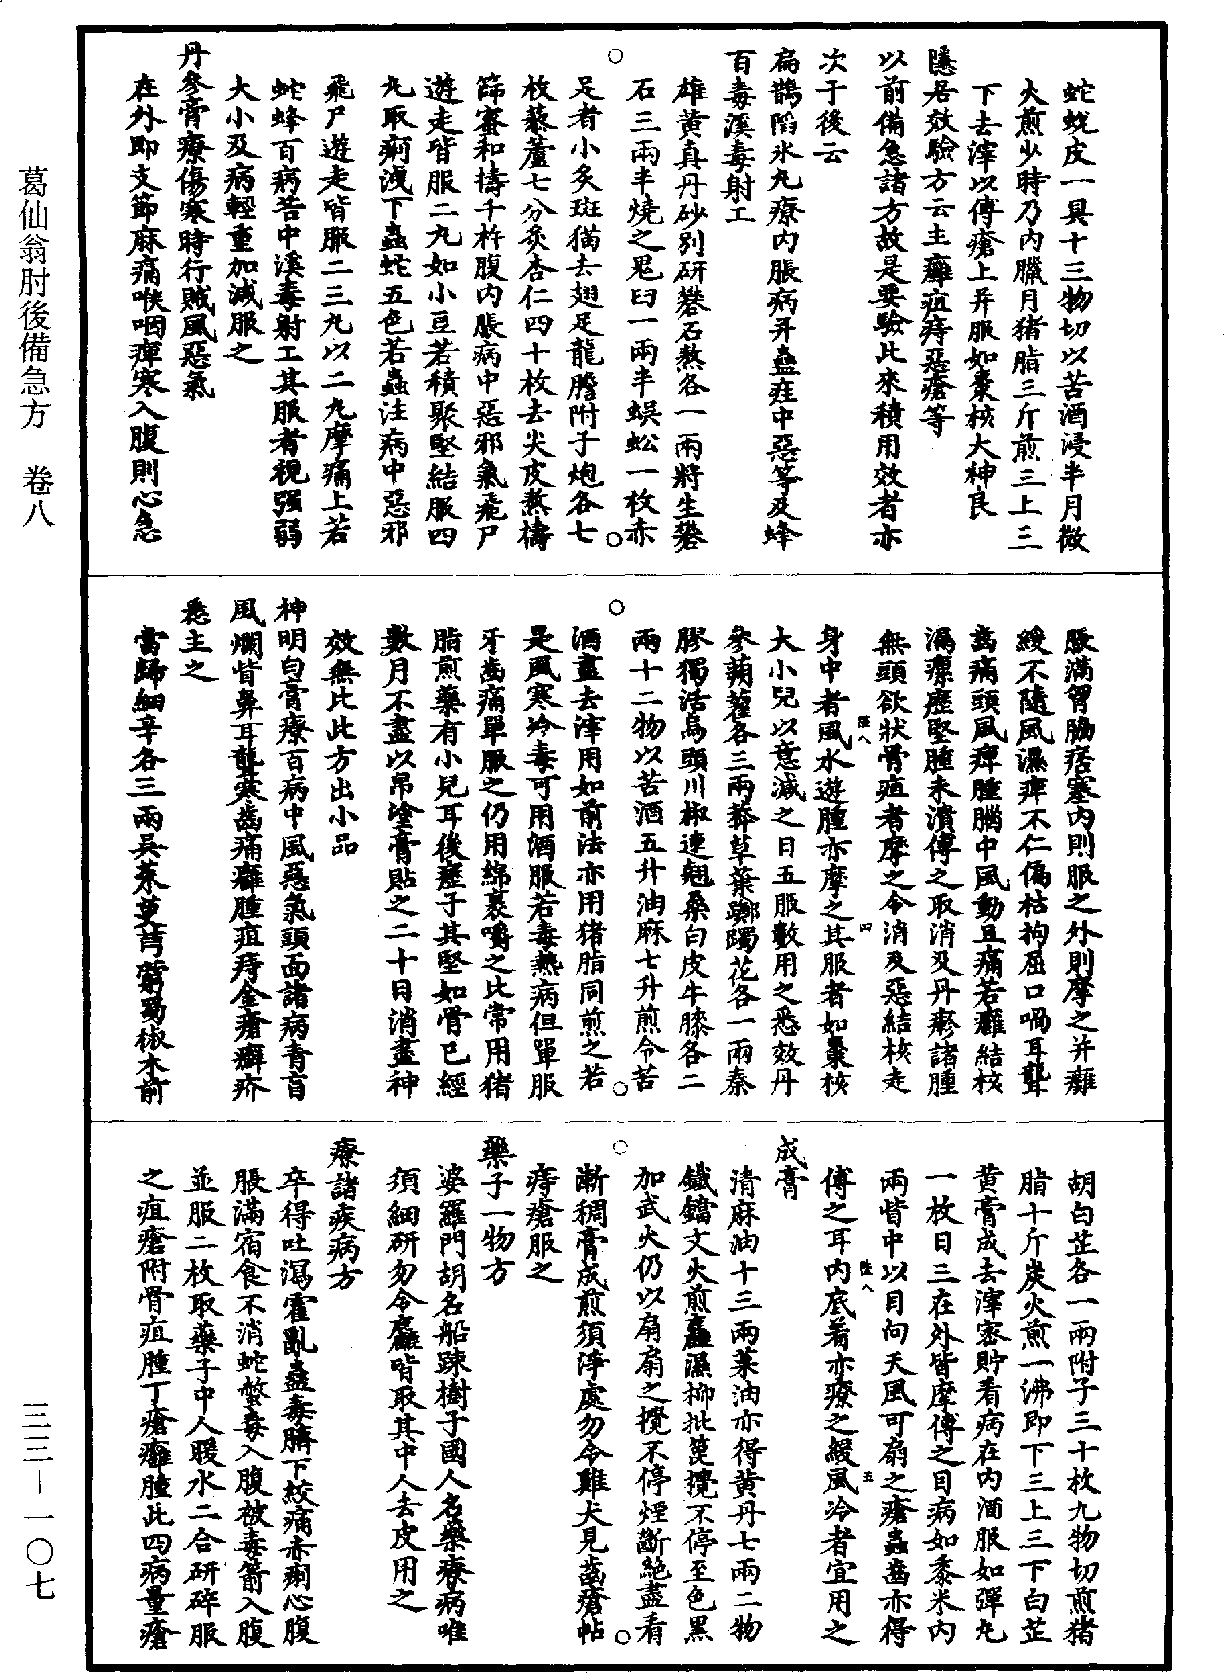 葛仙翁肘後備急方　卷八
三三—一〇七
蛇蛻皮一具十三物切以苦酒浸半月微
火煎少時乃內臘月猪脂三斤煎三上三
下去滓以傅瘡上并服如棗核大神良
隱居效驗方云主癰疽痔惡瘡等
以前備急諸方故是要驗此來積用效者亦
次于後云
扁鵲陷氷丸療內脹病并蠱疰中惡等及蜂
百毒溪毒射工
雄黃真丹砂別研礬石熬各一兩將生礬
石三兩半燒之鬼臼一兩半蜈蚣一枚赤
足者小炙斑猫去翅足龍膽附子炮各七
枚藜蘆七分炙杏仁四十枚去尖皮熬擣
篩蜜和擣千杵腹內脹病中惡邪氣飛尸
遊走皆服二丸如小豆若積聚堅結服四
丸取痢洩下蟲蛇五色若蟲注病中惡邪
飛尸遊走皆服二三丸以二丸摩痛上若
蛇蜂百病苦中溪毒射工其服者視强弱
大小及病輕重加減服之
丹參膏療傷寒時行賊風惡氣
在外即支節麻痛喉咽痺寒入腹則心急
脹滿胷脇痞塞內則服之外則摩之并癱
緩不隨風濕痺不仁偏枯拘屈口喎耳聾
齒痛頭風痺腫腦中風動且痛若癰結核
漏瘰癧堅腫未潰傅之取消及丹㾦諸腫
無頭欲狀骨疽者摩之令消及惡結核走
身中者風水遊腫亦摩之其服者如棗核
大小兒以意減之日五服數用之悉效丹
參蒴藋各三兩莽草葉躑躅花各一兩秦
膠獨活烏頭川椒連翹桑白皮牛膝各二
兩十二物以苦酒五升油麻七升煎令苦
酒盡去滓用如前法亦用猪脂同煎之若
是風寒冷毒可用酒服若毒熱病但單服
牙齒痛單服之仍用綿裹嚼之比常用猪
脂煎藥有小兒耳後癧子其堅如骨已經
數月不盡以帛塗膏貼之二十日消盡神
效無比此方出小品
神明白膏療百病中風惡氣頭面諸病青盲
風爛眥鼻耳聾寒齒痛癰腫疽痔金瘡癬疥
悉主之
當歸細辛各三兩吳茱萸芎藭蜀椒朮前
胡白芷各一兩附子三十枚九物切煎猪
脂十斤炭火煎一沸即下三上三下白芷
黃膏成去滓密貯看病在內酒服如彈丸
一枚日三在外皆摩傅之目病如黍米內
兩眥中以目向天風可扇之瘡蟲齒亦得
傅之耳內底着亦療之緩風冷者宜用之
成膏
清麻油十三兩菜油亦得黃丹七兩二物
鐵鐺文火煎麤濕柳批箆攪不停至色黑
加武火仍以扇扇之攪不停煙斷絶盡看
漸稠膏成煎須淨處勿令雞犬見齒瘡帖
痔瘡服之
藥子一物方
婆羅門胡名船疎樹子國人名藥療病唯
須細研勿令麤皆取其中人去皮用之
療諸疾病方
卒得吐瀉霍亂蠱毒臍下絞痛赤痢心腹
脹滿宿食不消蛇螫毒入腹被毒箭入腹
並服二枚取藥子中人暖水二合研碎服
之疽瘡附骨疽腫丁瘡癰腫此四病量瘡